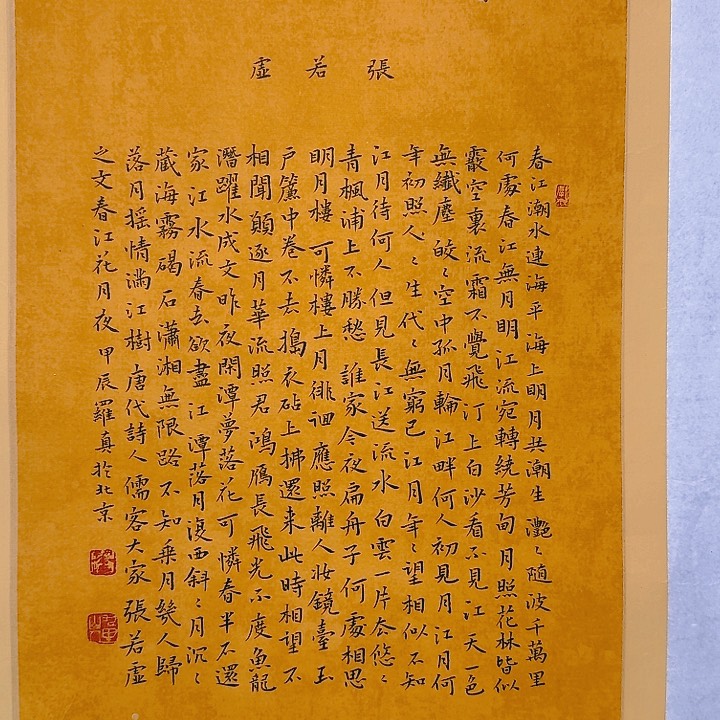 張若虛
春江潮水連海平海上明月共潮生灩〻随波千萬里
何處春江無月明江流宛轉繞芳甸月照花林皆似
霰空裏流霜不覺飛汀上白沙看不見江天一色
無纖塵皎〻空中孤月輪江畔何人初見月江月何
年初照人〻生代〻無窮已江月年〻望相似不知
江月待何人但見長江送流水白雲一片去悠〻
青楓浦上不勝愁誰家今夜扁舟子何處相思
明月樓可憐樓上月徘徊應照離人妝鏡臺玉
戶簾中卷不去搗衣砧上拂還来此時相望不
相聞願逐月華流照君鴻鴈長飛光不度魚龍
潛躍水成文昨夜閑潭夢落花可憐春半不還
家江水流春去欲盡江潭落月復西斜〻月沉〻
藏海霧碣石瀟湘無限路不知乘月幾人歸
落月摇情滿江樹唐代詩人儒客大家張若虛
之文春江花月夜甲辰羅真於北京